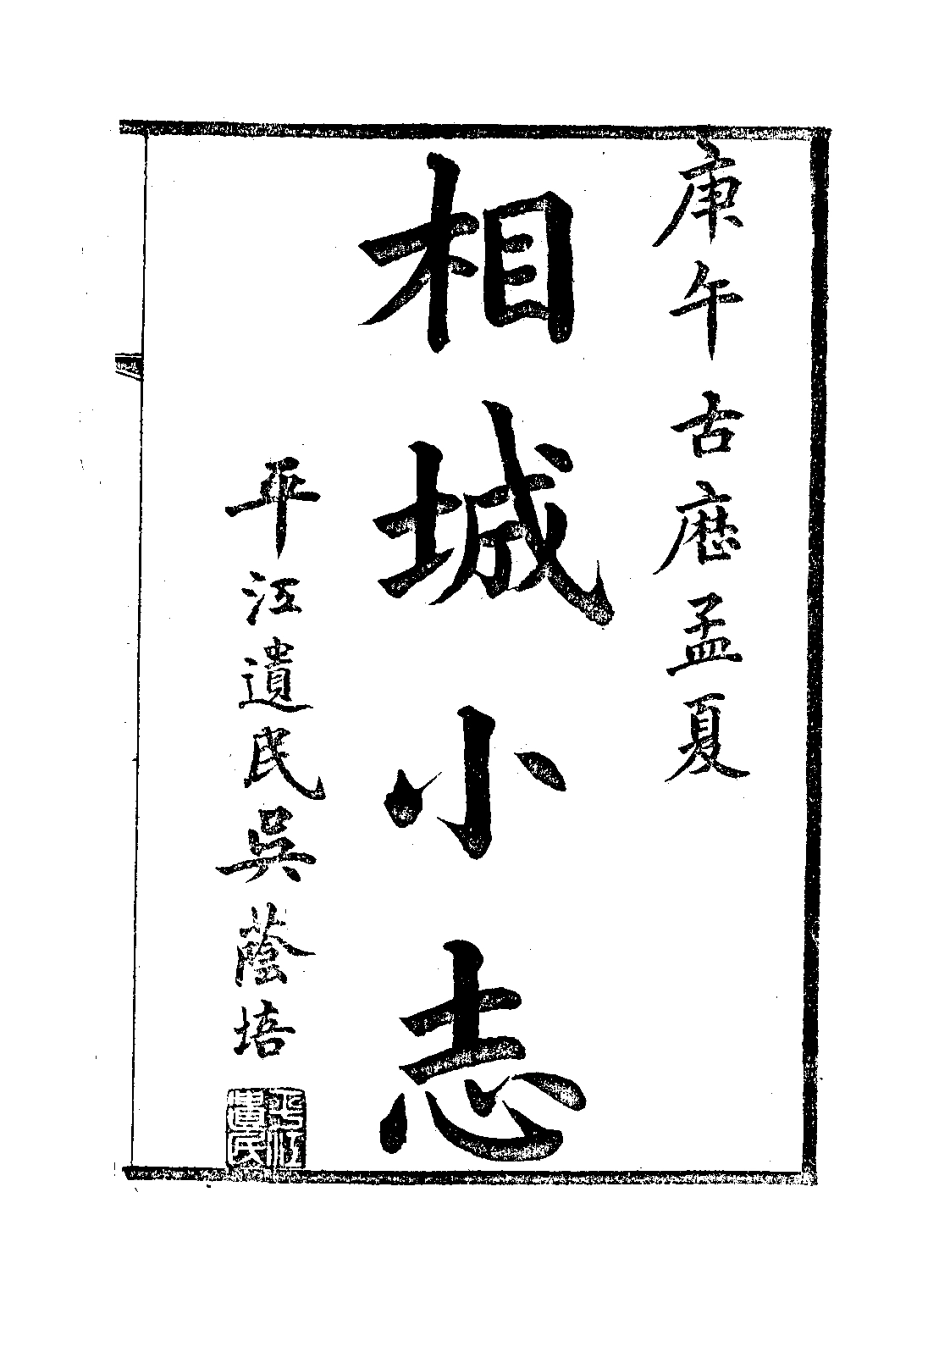 庚午古歷孟夏
相城小志
平江遺民吳蔭培
平江遺民